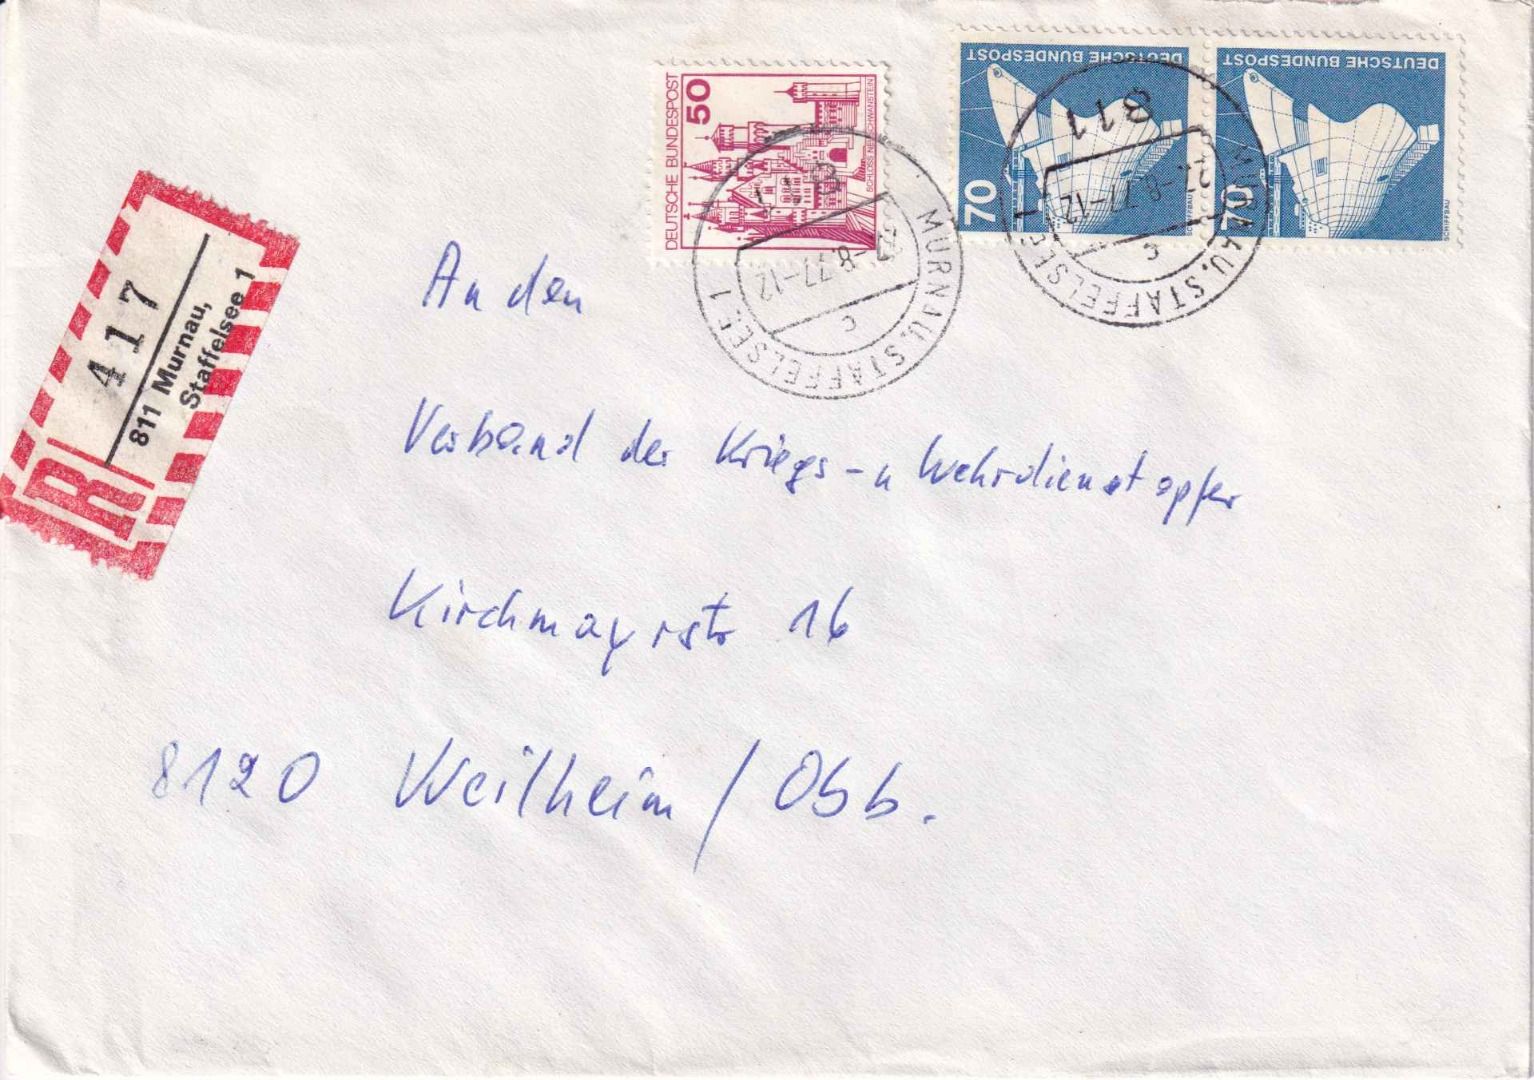 DEUTSCHE BUNDESPOST
50
SCHLOSS NEUSCHWANSTEIN
DEUTSCHE BUNDESPOST
70
SCHIFFBAU
DEUTSCHE BUNDESPOST
70
SCHIFFBAU
811
-8.77-12
c
MURNAU, STAFFELSEE 1
811
-8.77-12
c
MURNAU, STAFFELSEE 1
417
811 Murnau,
Staffelsee 1
R
An den
Verband der Kriegs-u Wehrdienstopfer
Kirchmayrstr 16
8120 Weilheim/Obb.